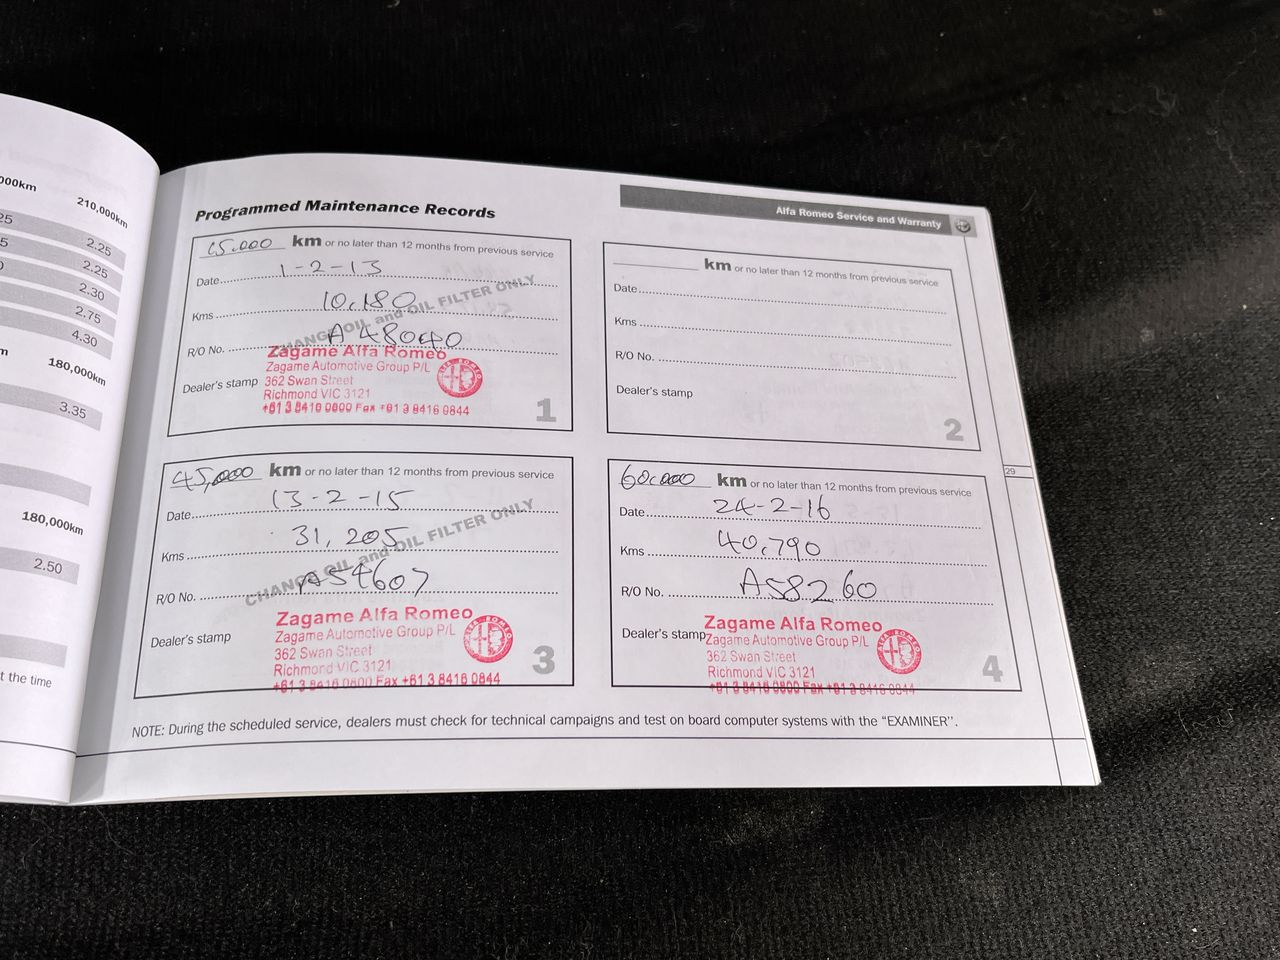 000km 210,000km
25 2.25
5 2.25
0 2.30
2.75
4.30
m 180,000km
3.35
180,000km
2.50
t the time
Programmed Maintenance Records
Alfa Romeo Service and Warranty
15.000 km or no later than 12 months from previous service
Date 1-2-13
Kms 10,180
R/O No. A48040
CHANGE OIL and OIL FILTER ONLY
Dealer's stamp
Zagame Alfa Romeo
Zagame Automotive Group P/L
362 Swan Street
Richmond VIC 3121
+61 3 8416 0800 Fax +61 3 8416 0844
ALFA ROMEO
1
km or no later than 12 months from previous service
Date
Kms
R/O No.
Dealer's stamp
2
45,000 km or no later than 12 months from previous service
Date 13-2-15
Kms 31,205
R/O No. A54607
CHANGE OIL and OIL FILTER ONLY
Dealer's stamp
Zagame Alfa Romeo
Zagame Automotive Group P/L
362 Swan Street
Richmond VIC 3121
+61 3 8416 0800 Fax +61 3 8416 0844
ALFA ROMEO
3
60.000 km or no later than 12 months from previous service
Date 24-2-16
Kms 40,790
R/O No. A58260
Dealer's stamp
Zagame Alfa Romeo
Zagame Automotive Group P/L
362 Swan Street
Richmond VIC 3121
+61 3 8416 0800 Fax +61 3 8416 0844
ALFA ROMEO
4
29
NOTE: During the scheduled service, dealers must check for technical campaigns and test on board computer systems with the "EXAMINER".